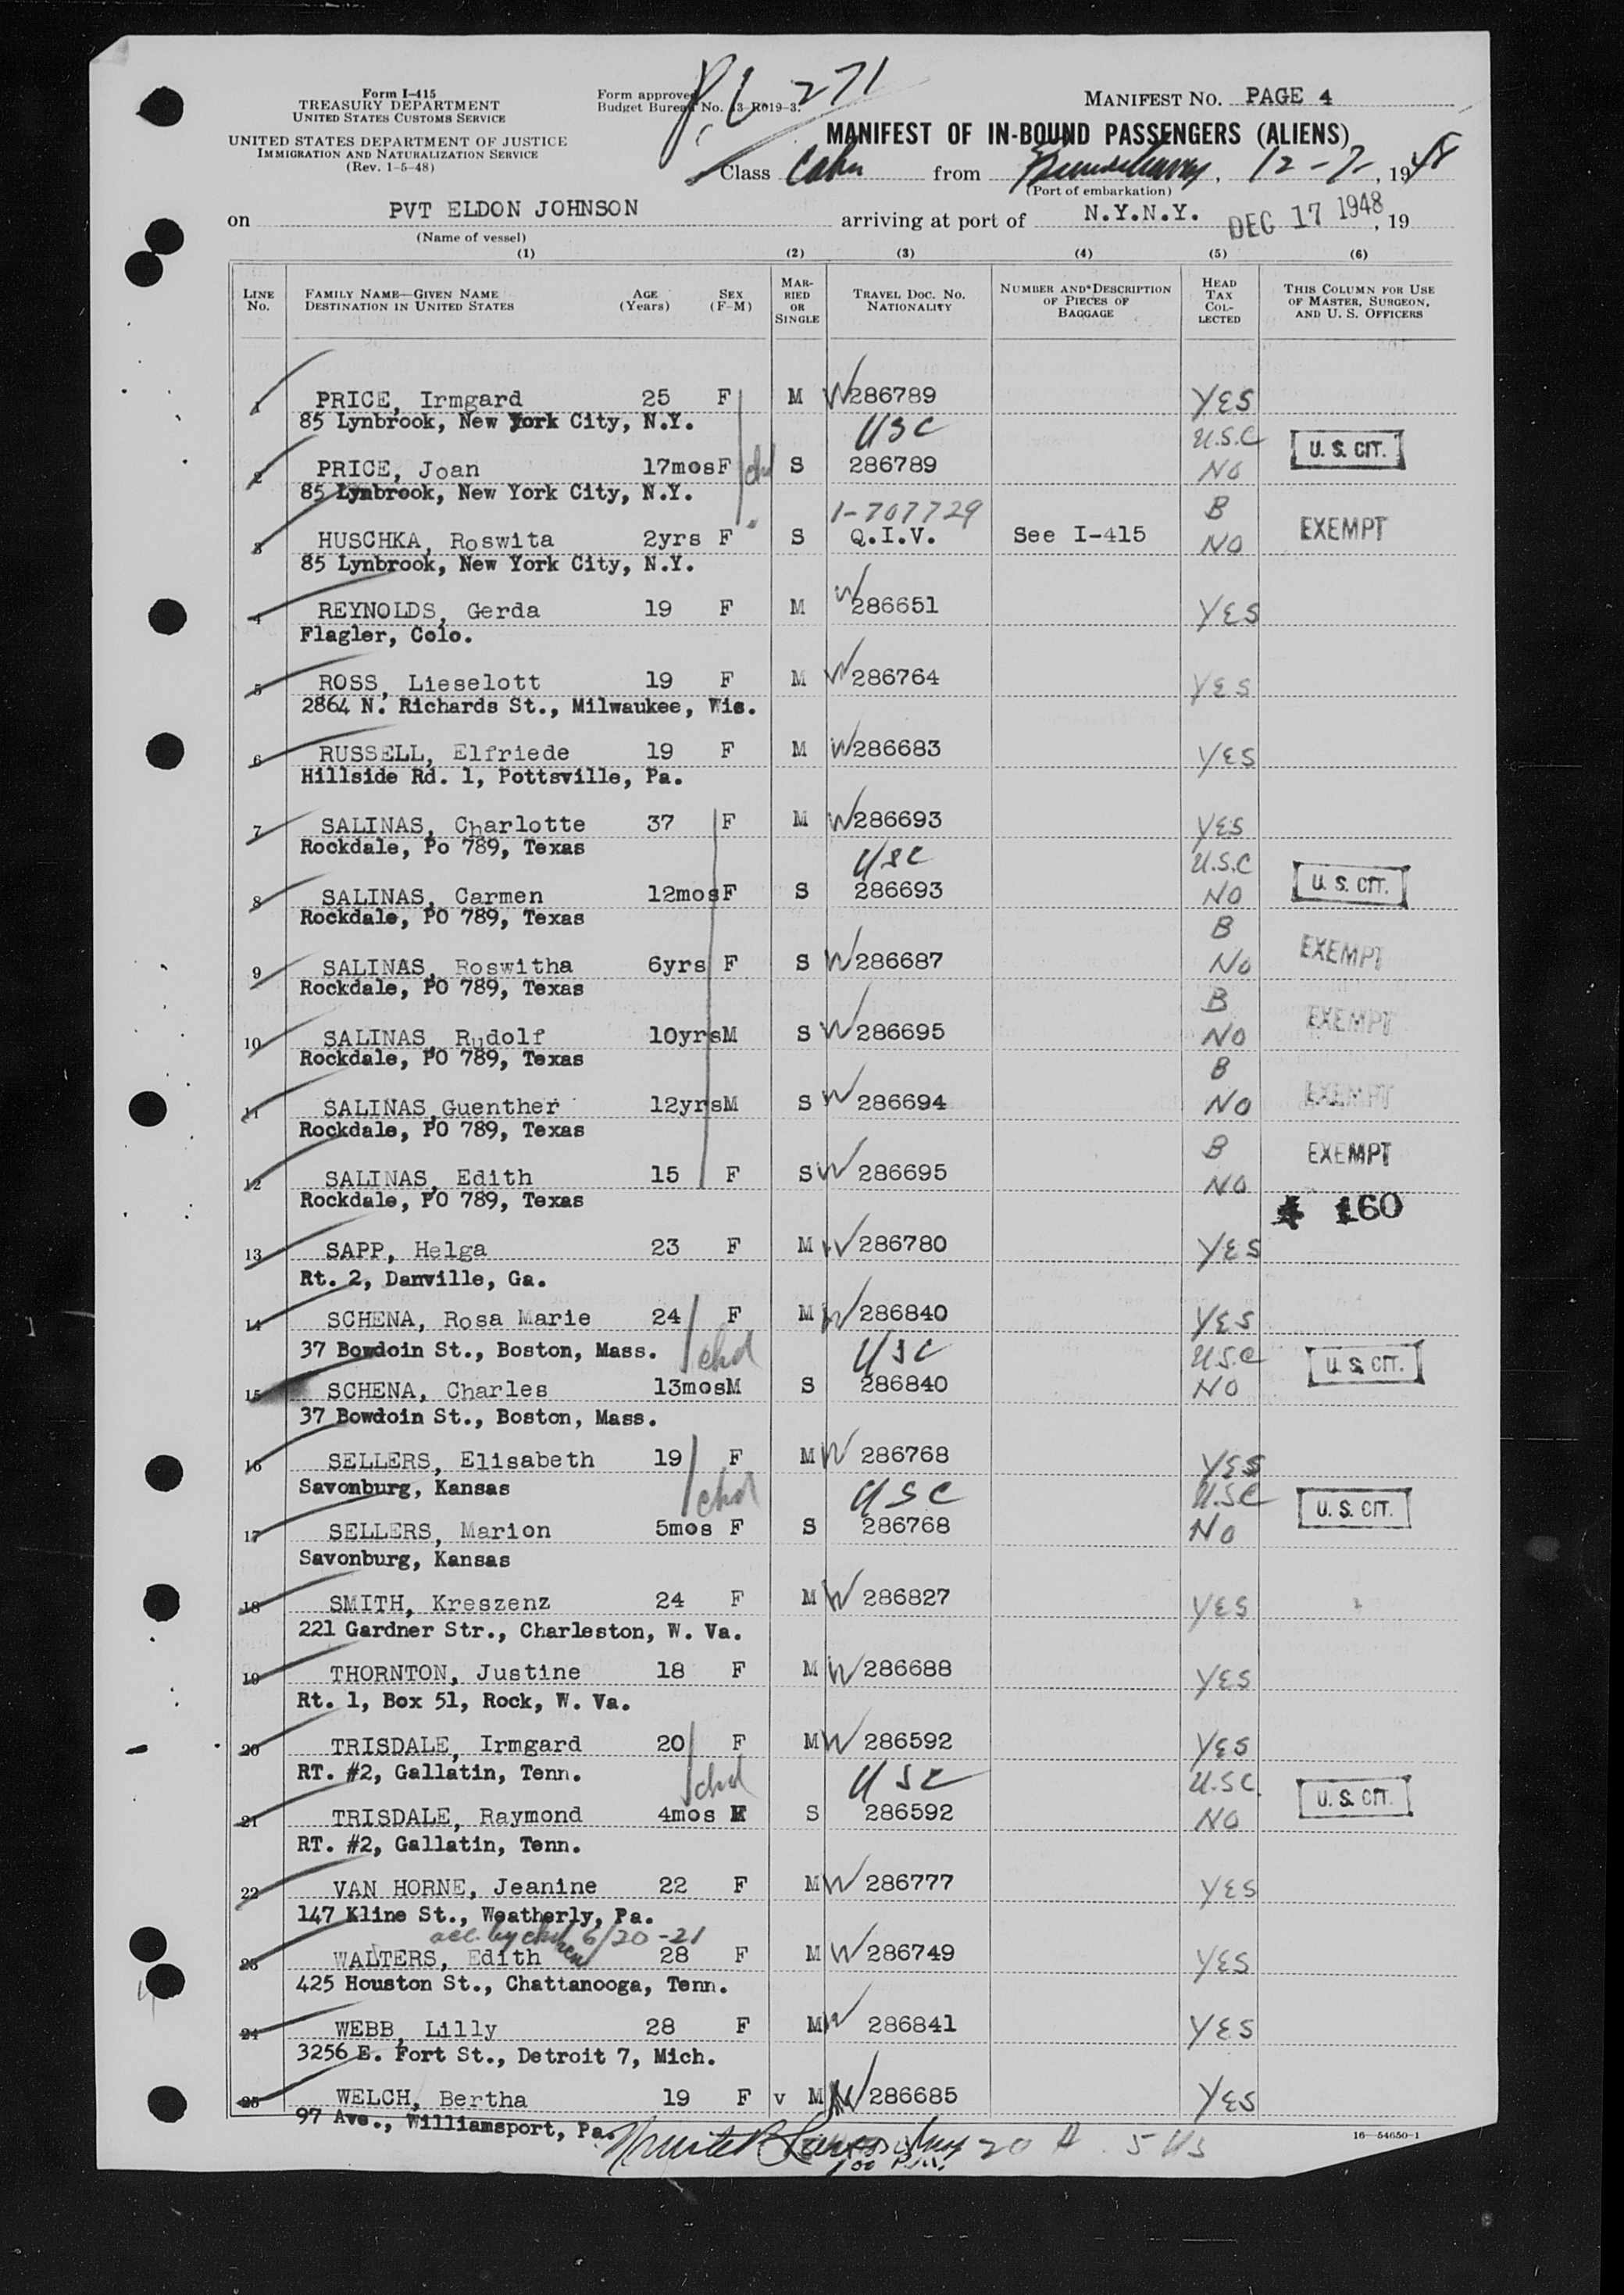 Form I-415
TREASURY DEPARTMENT
UNITED STATES CUSTOMS SERVICE
UNITED STATES DEPARTMENT OF JUSTICE
IMMIGRATION AND NATURALIZATION SERVICE
(Rev. 1-5-48)
Form approved
Budget Bureau No. 43-R019-3.
271
MANIFEST NO. PAGE 4
MANIFEST OF IN-BOUND PASSENGERS (ALIENS)
Class Cabin from Bremerhaven, 12-7-, 1948
(Port of embarkation)
on PVT ELDON JOHNSON arriving at port of N.Y.N.Y. DEC 17 1948, 19
(Name of vessel)
(1) (2) (3) (4) (5) (6)
LINE NO. FAMILY NAME—GIVEN NAME DESTINATION IN UNITED STATES AGE (Years) SEX (F-M) MARRIED OR SINGLE TRAVEL DOC. NO. NATIONALITY NUMBER AND DESCRIPTION OF PIECES OF BAGGAGE HEAD TAX COLLECTED THIS COLUMN FOR USE OF MASTER, SURGEON, AND U. S. OFFICERS
1 PRICE, Irmgard 25 F M W286789 YES
85 Lynbrook, New York City, N.Y. USC U.S.C
2 PRICE, Joan 17mos F chd S 286789 NO U. S. CIT.
85 Lynbrook, New York City, N.Y. 1-707729 B
3 HUSCHKA, Roswita 2yrs F S Q.I.V. See I-415 NO EXEMPT
85 Lynbrook, New York City, N.Y.
4 REYNOLDS, Gerda 19 F M W286651 YES
Flagler, Colo.
5 ROSS, Lieselott 19 F M W286764 YES
2864 N. Richards St., Milwaukee, Wis.
6 RUSSELL, Elfriede 19 F M W286683 YES
Hillside Rd. 1, Pottsville, Pa.
7 SALINAS, Charlotte 37 F M W286693 YES
Rockdale, Po 789, Texas USC U.S.C
8 SALINAS, Carmen 12mos F S 286693 NO U. S. CIT.
Rockdale, PO 789, Texas B
9 SALINAS, Roswitha 6yrs F S W286687 NO EXEMPT
Rockdale, PO 789, Texas B
10 SALINAS, Rudolf 10yrs M S W286695 NO EXEMPT
Rockdale, PO 789, Texas B
11 SALINAS, Guenther 12yrs M S W286694 NO EXEMPT
Rockdale, PO 789, Texas B
12 SALINAS, Edith 15 F S W286695 NO EXEMPT
Rockdale, PO 789, Texas 160
13 SAPP, Helga 23 F M W286780 YES
Rt. 2, Danville, Ga.
14 SCHENA, Rosa Marie 24 F M W286840 YES
37 Bowdoin St., Boston, Mass. chd USC U.S.C
15 SCHENA, Charles 13mos M S 286840 NO U. S. CIT.
37 Bowdoin St., Boston, Mass.
16 SELLERS, Elisabeth 19 F M W286768 YES
Savonburg, Kansas chd USC U.S.C
17 SELLERS, Marion 5mos F S 286768 NO U. S. CIT.
Savonburg, Kansas
18 SMITH, Kreszenz 24 F M W286827 YES
221 Gardner Str., Charleston, W. Va.
19 THORNTON, Justine 18 F M W286688 YES
Rt. 1, Box 51, Rock, W. Va.
20 TRISDALE, Irmgard 20 F M W286592 YES
RT. #2, Gallatin, Tenn. chd USC U.S.C.
21 TRISDALE, Raymond 4mos S 286592 NO U. S. CIT.
RT. #2, Gallatin, Tenn.
22 VAN HORNE, Jeanine 22 F M W286777 YES
147 Kline St., Weatherly, Pa.
acc. by children 6/20-21
23 WALTERS, Edith 28 F M W286749 YES
425 Houston St., Chattanooga, Tenn.
24 WEBB, Lilly 28 F M W286841 YES
3256 E. Fort St., Detroit 7, Mich.
25 WELCH, Bertha 19 F v M W286685 YES
97 Ave., Williamsport, Pa.
20 A 5 US
16—54650-1